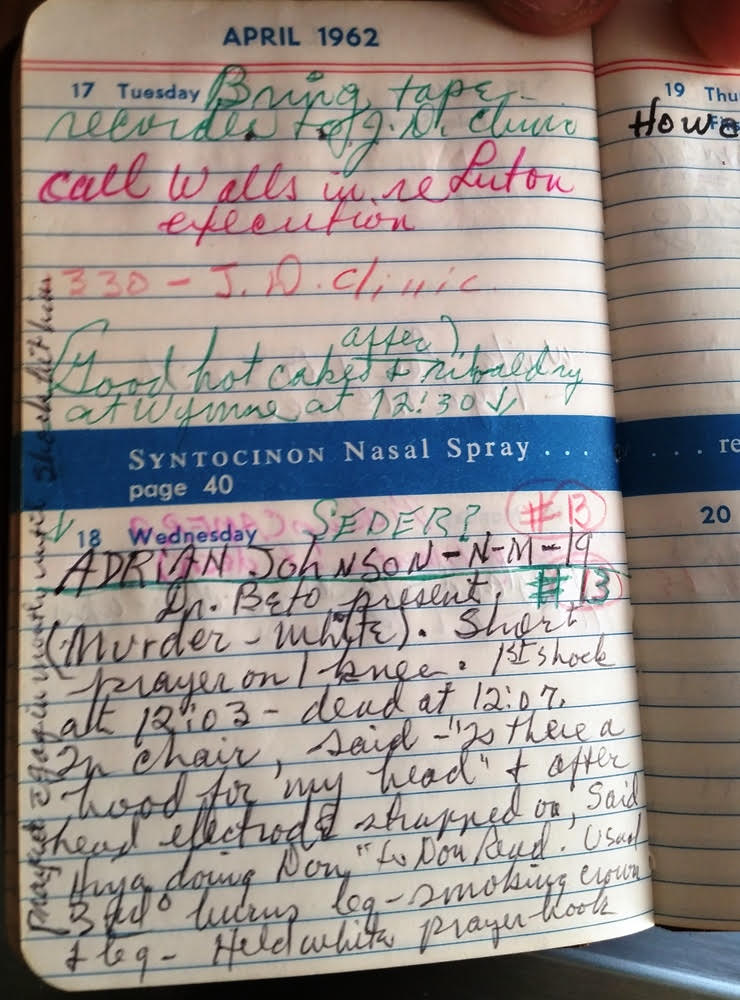 APRIL 1962
17 Tuesday Bring tape
recorder to J.D. Clinic
call Walls in re Luton
execution
330 - J.D. Clinic
after)
(Good hot cakes & ribaldry
at Wynne at 12:30
SYNTOCINON Nasal Spray ...
page 40
18 Wednesday SEDER? #13
ADRIAN JohNSON-N-M-19
Dr. Beto present. #13
(Murder-white). Short
prayer on 1 knee. 1st shock
at 12:03 - dead at 12:07.
In chair, said - "Is there a
hood for my head" & after
head electrode strapped on, Said
Hiya doing Don" to Don Reid. Usual
3rd° burns leg - smoking crown
& leg - Held white prayer book
prayed again mostly until shock hit him
19 Thu
Howe
... re
20